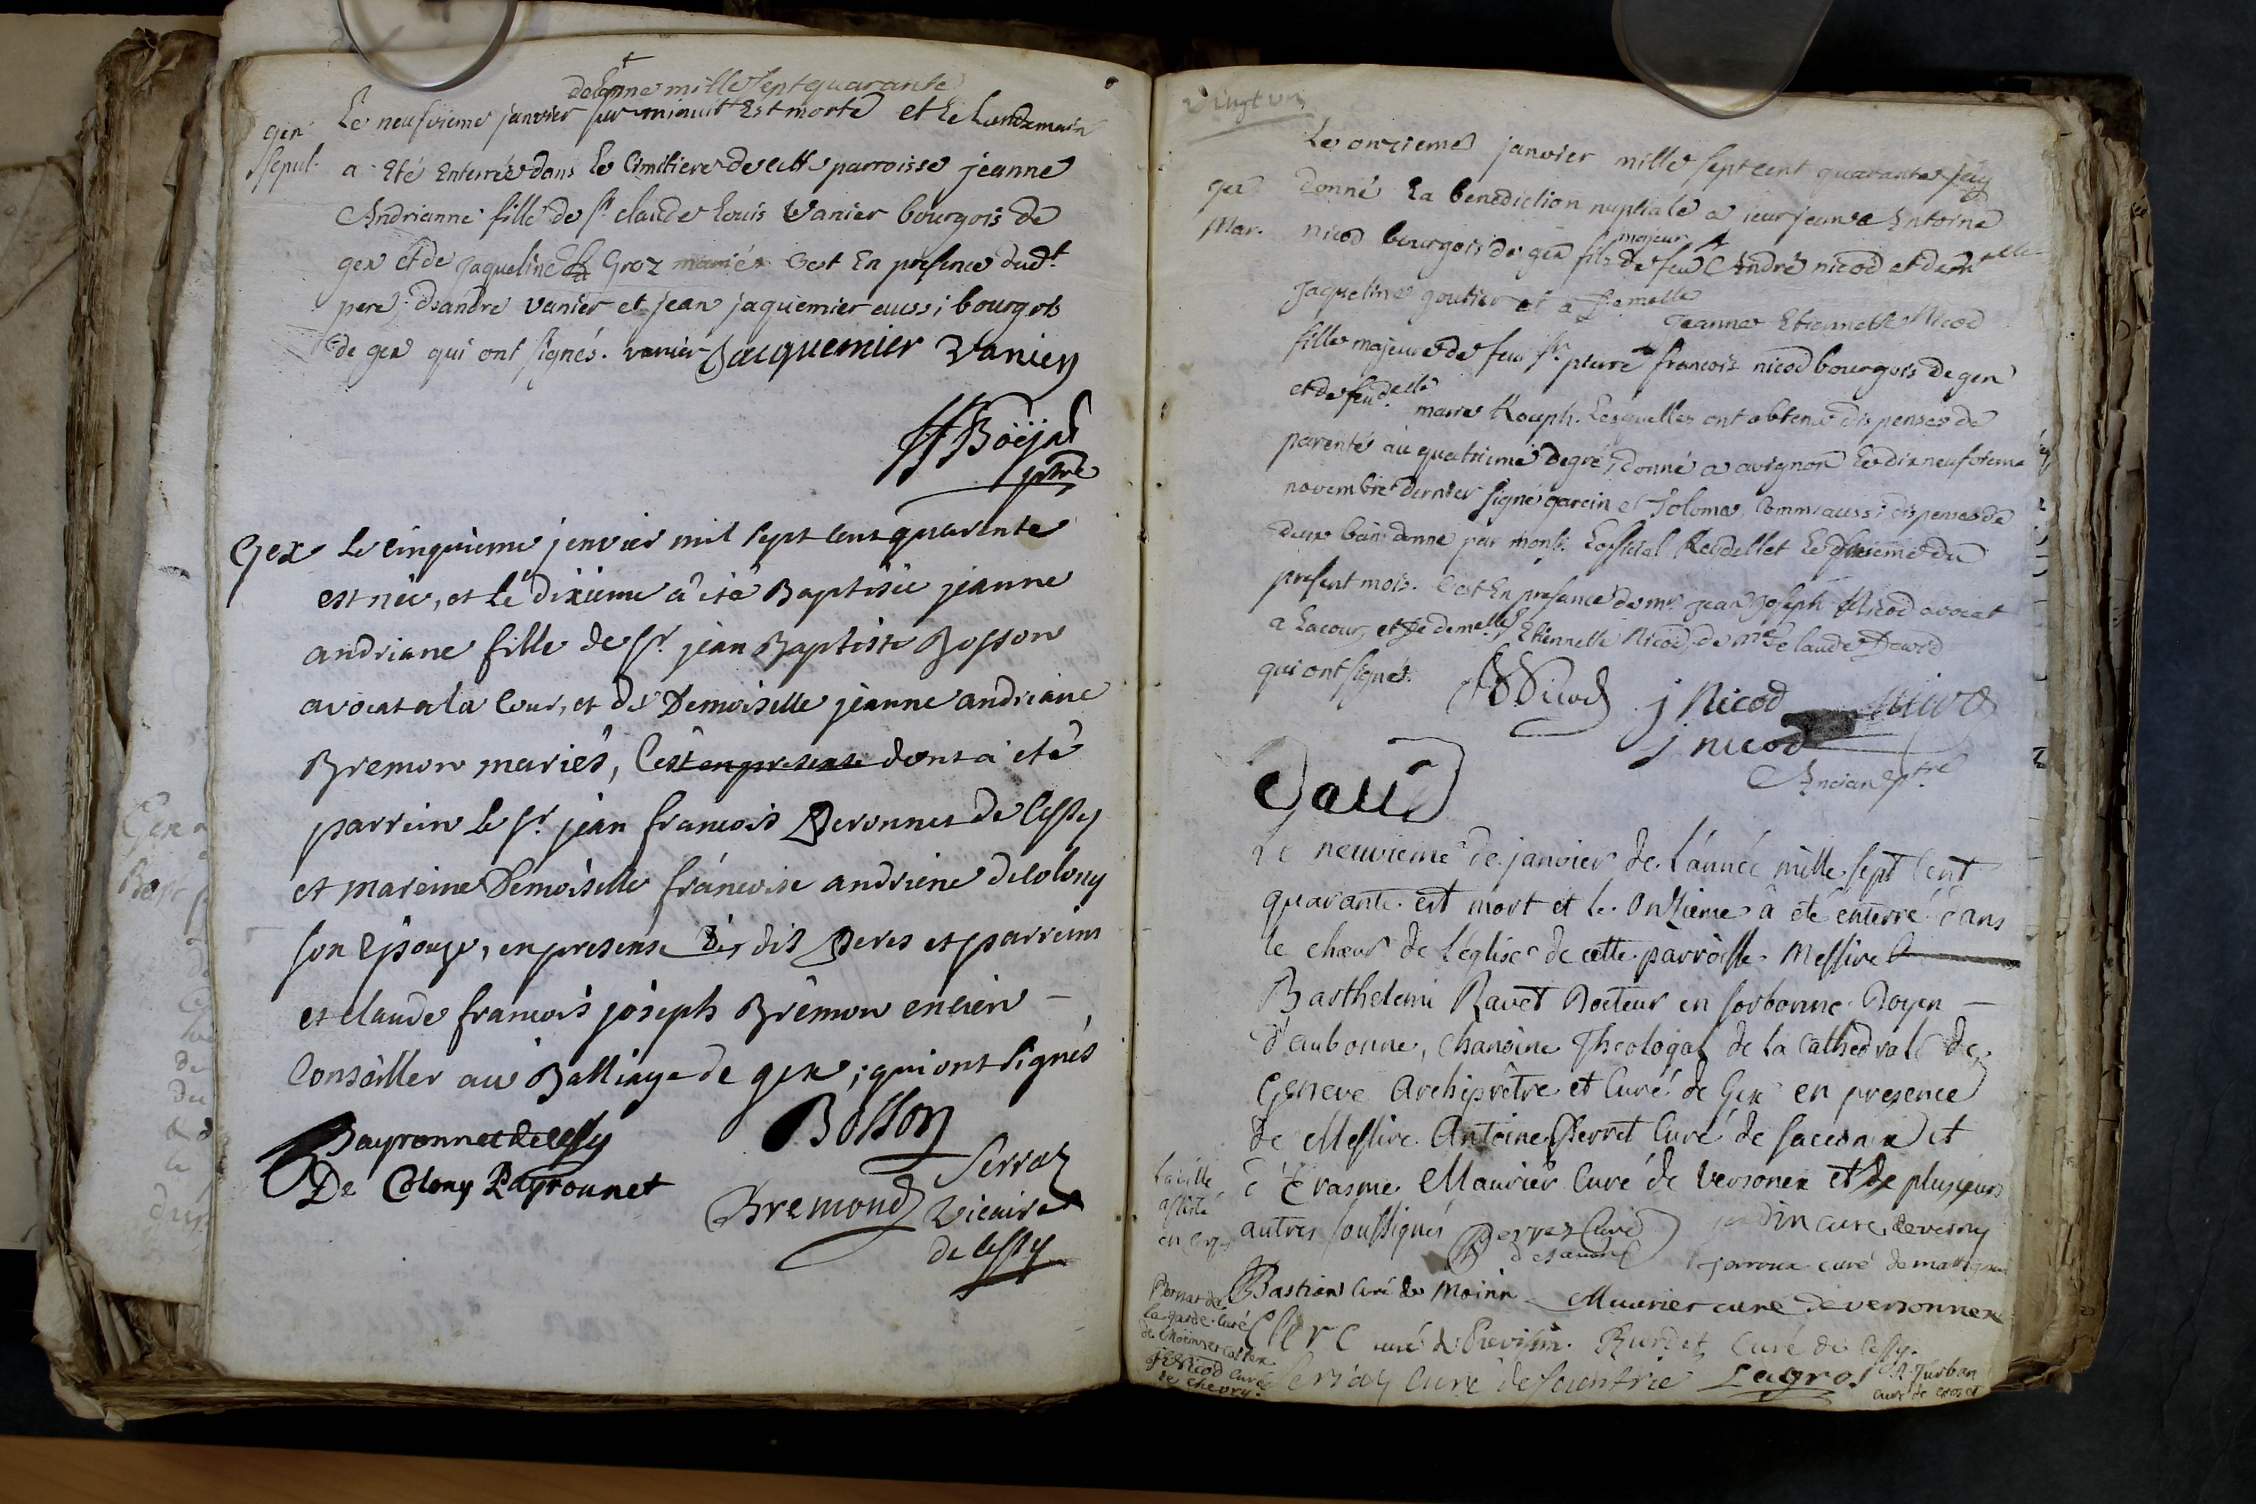 de lanne mille sept quarante
Gex Le neufvieme janvier sur minuit Est morte et le Lendemain
Sepul. a Eté Enterrée dans le Cimitiere de cette parroisse jeanne
Andrianne fille de sr claude Louis Vanier bourgois de
gex et de jaqueline Groz mariés Cest En presence dudt
pere, dandré vanier et jean jaquemier aussi bourgois
de gex qui ont signés. vanier Jacquemier Vanier
Boëjat
ptre
Gex Le cinquieme jenvier mil sept cent quarente
est née, et Le dixieme a été Baptisée jeanne
andriane fille de sr. jean Baptiste Bosson
avocat a la Cour, et de Demoiselle jeanne andriane
Bremon mariés, C'est en presense dont a été
parrein le sr. jean francois Peronnet de Cessy
et mareine Demoiselle francoise andriene de Colony
son Epouse, en presense des dis Peres et parreins
et claude francois joseph Bremon encien
Consailler au Balliage de gex ; qui ont signés
Payronnet de Cessy Bosson
De Colony Payronnet Serraz
Bremond Vicaire
de Cessy
vingt un
Le onzieme janvier mille sept cent quarante jay
gex donné la benediction nuptiale a sieur jean Antoine
Mar. nicod bourgois de gex fils majeur de feu André nicod et de delle
jaqueline goutier et a Demelle jeanne Etiennette Nicod
fille majeure de feu sr. pierre francois nicod bourgois de gex
et de feu delle marie Rouph. Lesquelles ont obtenu dispenses de
parenté au quatrieme degré, donné a avignon le dix neufvieme
novembre dernier signé garcin et Tolomas, Comme aussi dispenses de
deux bans donné par monsr. Lofficial Reydellet le du
present mois. Cest En presence de mr. jean joseph Nicod avocat
a Lacour, et de demelle Etiennette Nicod, de mre Claude David
qui ont signés. Nicod j Nicod
j nicod
Ancian ptre
David
Le neuvieme de janvier de L'année mille sept Cent
quarante est mort et le Onzieme a été enterré dans
le chœur de L'église de cette parroisse Messire
Barthelemi Ravet Docteur en sorbonne Doyen
d'aubonne, Chanoine Theologal de la Cathedrale de
Geneve Archiprêtre et Curé de Gex en presence
de Messire Antoine Perret Curé de Saconnex et
d'Erasme Maurier Curé de Versonex et de plusieurs
autres soussignés Perret Curé jardin curé de
la ville
assisté
en Corps
jarroux curé de
Bastian Curé de Moinn Maurier curé deversonnex
Pernat de
la garde Curé
de Clerc curé de Prevessin. Burdet Curé de Cessy.
JF Nicod Curé
de Chevry.
Curé de Legros Turban
curé de crozet